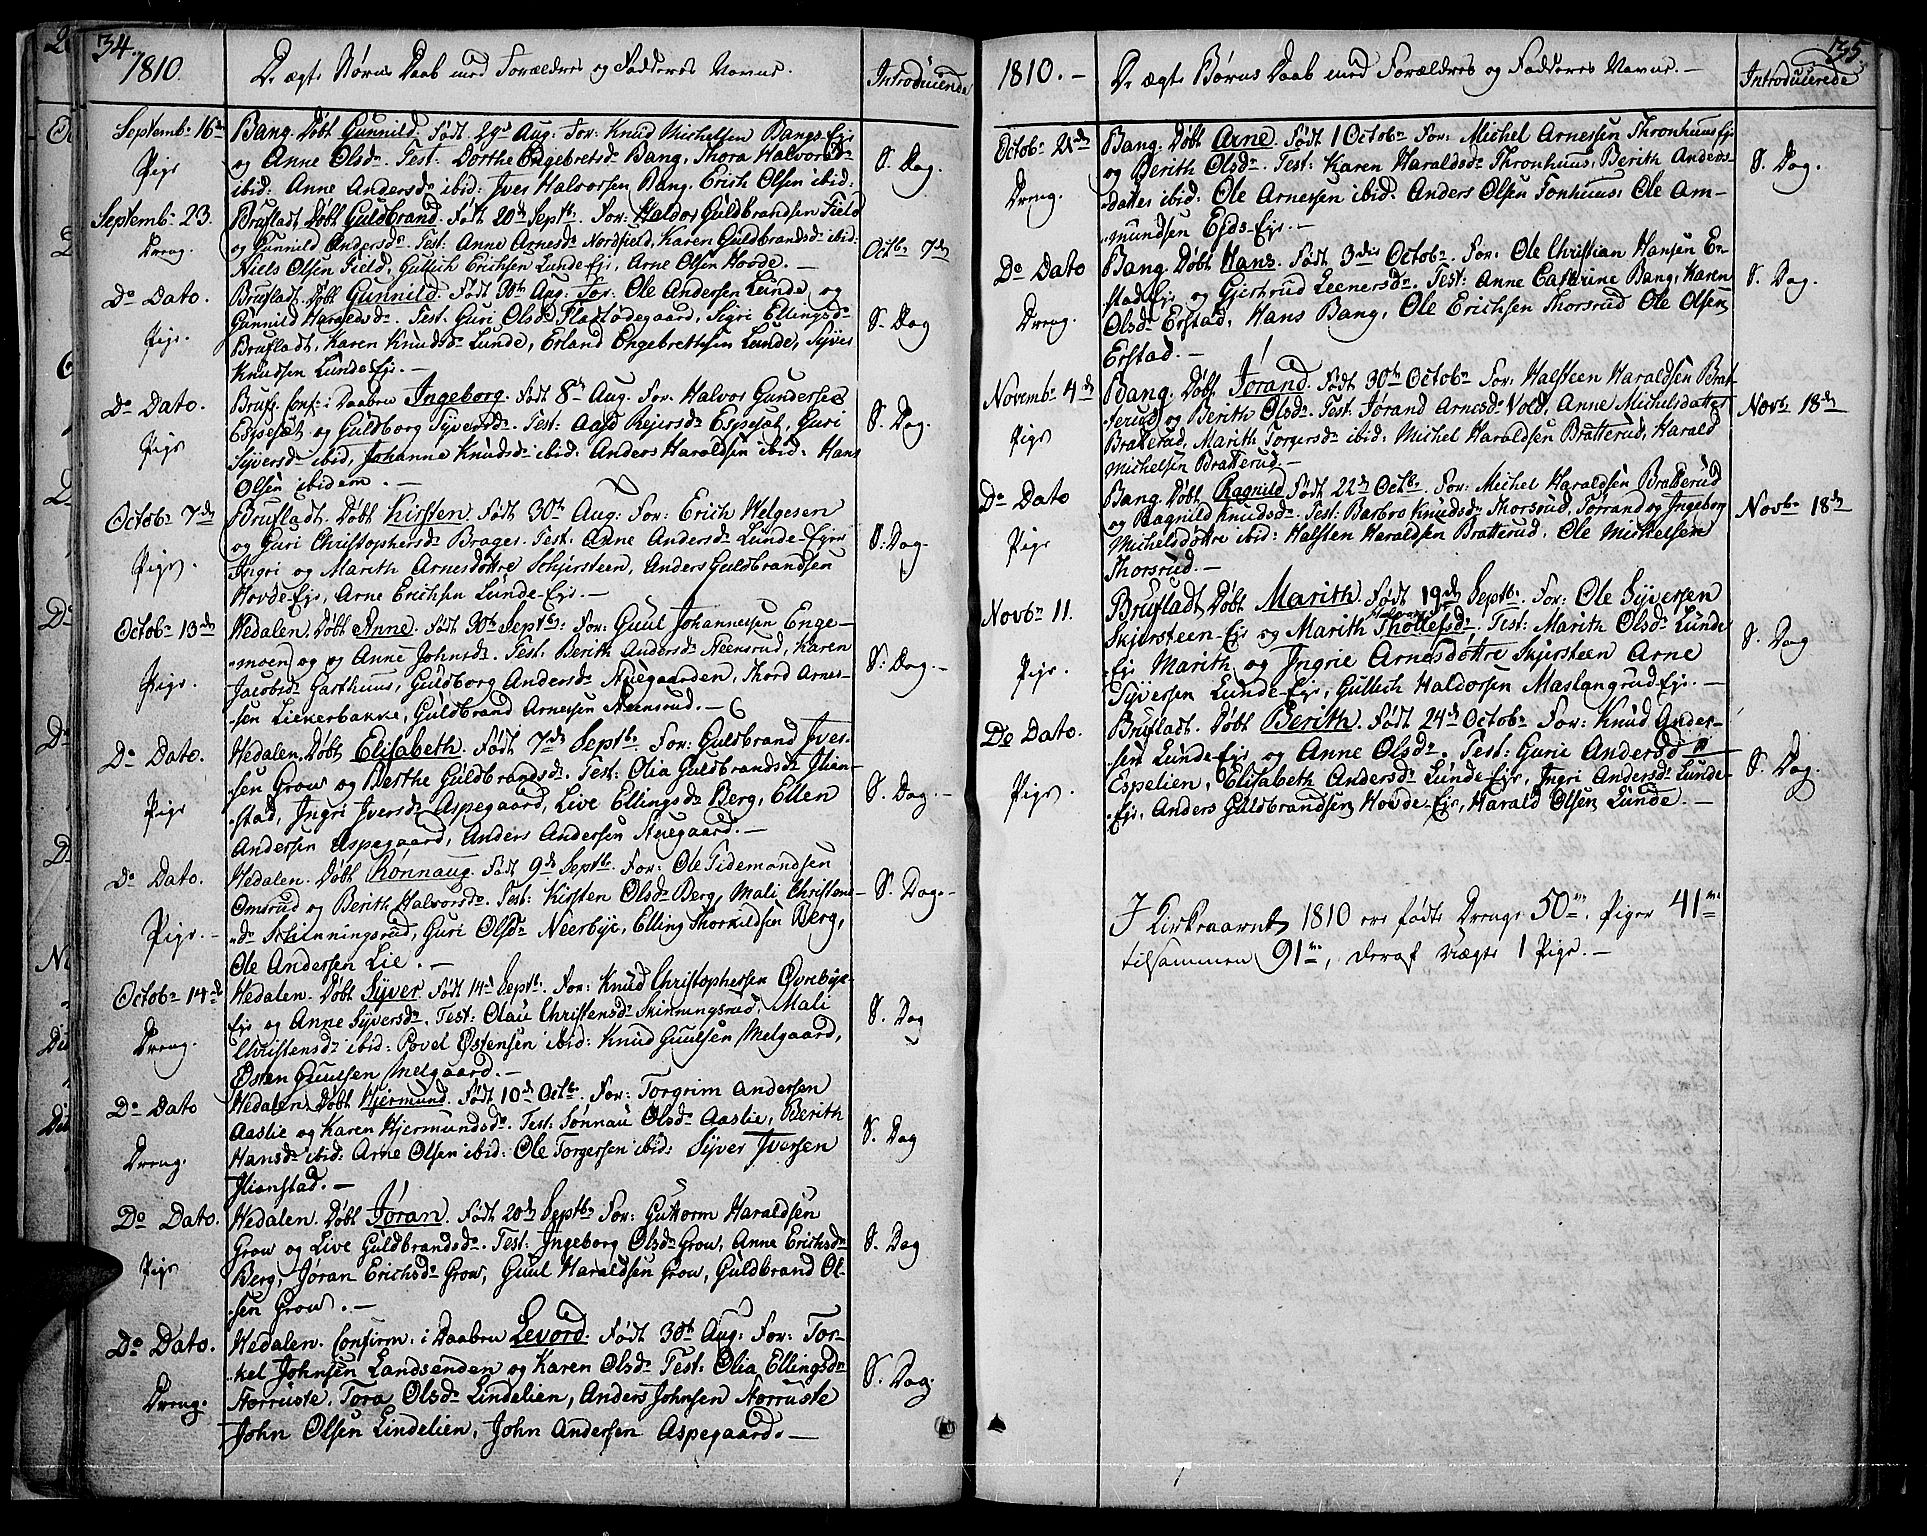 34.
1810.
De ægte Børns Daab med Forældres og Fadderes Navne.
Introducerede
Septembr 16de
Pige
Bang. Døbt Gunnild. Født 29de Aug: For: Knud Michelsen Bangs-Eje
og Anne Olsdr. Test: Dorthe Engebretsdr Bang, Thora Halvorsdr
ibid: Anne Andersdr ibid: Iver Halvorsen Bang, Erich Olsen ibid:
S. Dag.
Septembr 23.
Dreng.
Brufladt, Døbt Guldbrand. Født 20de Septbr. For: Haldor Guldbrandsen Field
og Gunnild Andersdr. Test: Anne Arnesdr Nordfield, Karen Guldbrandsdr ibid:
Niels Olsen Field, Gullich Erichsen Lunde-Eje, Arne Olsen Hovde.—
Octbr 7de
Do Dato.
Pige.
Bruflat. Døbt Gunnild. Født 30te Aug: For: Ole Andersen Lunde og
Gunnild Haraldsdr. Test: Guri Olsdr Fladtødegaard, Sigri Ellingsdr
Brufladt, Karen Knudsdr Lunde, Erland Engebrettsen Lunde, Syver
Knudsen Lunde-Eje.—
S. Dag
Do Dato.
Pige
Brufl. Conf: i Daaben Ingeborg. Født 8de Aug. For: Halvor Gundersen
Espesæt og Guldborg Syversdr. Test: Aase Rejersdr Espesæt, Guri
Syversdr ibid, Johanne Knudsdr ibid: Anders Haroldsen ibid: Hans
Olsen ibidem.—
S. Dag.
Octobr 7de
Pige.
Brufladt. Døbt Kirsten. Født 30te Aug: For: Erich Helgesen
og Guri Christophersdr Brager. Test: Anne Andersdr Lunde-Eje
Ingri og Marith Arnesdøttre Schjersteen, Anders Guldbrandsen
Hovde-Eje, Arne Erichsen Lunde-Eje.—
S: Dag.
Octobr 13de
Pige.
Hedalen. Døbt Anne. Født 30te Septbr: For: Guul Johannessen Enge-
moen og og Anne Johnsdr. Test: Berith Andersdr Steensrud, Karen
Jacobsdr Garthuus, Guldborg Andersdr Stuegaarden, Thord Arnes-
sen Lienerbakke, Guldbrand Arnessen Steensrud.—
S. Dag.—
Do Dato.
Pige
Hedalen. Døbt Elisabeth. Født 7de Septbr. For: Guldbrand Iver-
sen Grow og Berthe Guldbrandsdr. Test: Olia Guldbrandsdr Ilien-
stad, Ingri Iversdr Aspegaard, Live Ellingsdr Berg, Ellen
Andersen Aspegaard, Anders Andersen Stuegaard.—
S. Dag.—
Do Dato.
Pige.—
Hedalen. Døbt Rønnaug. Født 9de Septbr. For: Ole Tidemandsen
Omsrud og Berith Halvorsdr. Test: Kirsten Olsdr Berg, Mali Christens-
dr Skinningsrud, Guri Olsdr Neerbye, Elling Thorkildsen Berg,
Ole Andersen Lie.—
S. Dag.—
Octobr 14de
Dreng.
Hedalen. Døbt Syver. Født 14de Septbr. For: Knud Christophersen Øvrebye-
Eje og Anne Syversdr. Test: Olau Christensdr Skinningsrud, Mali
Christensdr ibid: Povel Østensen ibid: Knud Guulsen Melgaard,
Østen Guulsen Melgaard.—
S. Dag
Do Dato
Dreng.
Hedalen. Døbt Hjermund. Født 10de Octbr. For: Torgrim Andersen
Aaslie og Karen Hjermundsdr. Test: Sønnau Olsdr Aaslie, Berith
Hansdr ibid: Arne Olsen ibid: Ole Torgersen ibid: Syver Iversen
Ilienstad.—
S. Dag
Do Dato.
Pige
Hedalen. Døbt Jøran. Født 20de Septbr For: Guttorm Haraldsen
Grow og Live Guldbrandsdr. Test: Ingeborg Olsdr Grow, Anne Erichsdr
Berg, Jøran Erichsdr Grow, Guul Haraldsen Grow, Guldbrand Ol-
sen Grow.—
S. Dag
Do Dato.
Dreng.
Hedalen. Confirm: i Daaben Levord. Født 30te Aug: For: Tor-
kel Johnsen Landsenden og Karen Olsdr Test: Olia Ellingsdr
Storruste. Tora Olsdr Lindelien, Anders Johnsen Storruste
John Olsen Lindelien, John Andersen Aspegaard.—
S. Dag.
35.
1810.—
De ægte Børns Daab med Forældres og Fadderes Navne.—
Introducerede
Octobr 21de
Dreng.
Bang. Døbt Arne. Født 1 Octobr. For: Michel Arnessen Thronhuus Eje
og Berith Olsdr. Test: Karen Haraldsdr Thronhuus, Berith Anders-
datter ibid: Ole Arnessen ibid: Anders Olsen Tonhuus, Ole Am-
mundsen Eids-Eje.—
S. Dag.
Do Dato
Dreng.
Bang. Døbt Hans. Født 3die Octobr. For: Ole Christian Hansen Er-
stad-Eje og Gjertrud Leenersdr. Test: Anne Cathrine Bang, Karen
Olsdr Erstad, Hans Bang, Ole Erichsen Thorsrud Ole Olsen
Erstad.—
S. Dag.
Novembr 4de
Pige
Bang. Døbt Jørand. Født 30te Octobr For: Halsteen Haraldsen Brat-
terud og Berith Olsdr. Test: Jørand Arnesdr Vold, Anne Michelsdatter
Bratterud, Marith Torgersdr ibid: Michel Haraldsen Bratterud, Harald
Michelsen Bratterud.—
Novbr 18de
Do Dato
Pige
Bang. Døbt Ragnild. Født 22de Octbr. For: Michel Haraldsen Bratterud
og Ragnild Knudsdr. Test: Barbro Knudsdr Thorsrud, Jørrand og Ingeborg
Michelsdøttre ibid: Halsten Haraldsen Bratterud, Ole Michelsen
Thorsrud.—
Novbr 18de
Novbr 11.
Pige.
Brufladt. Døbt Marith. Født 19de Septbr. For: Ole Syversen
Skjersteen-Eje og Marith Thollefsdr. Test: Marith Olsdr Lunde
-Eje Marith og Ingrie Arnesdøttre Skjersteen Arne
Syversen Lunde-Eje, Gullich Haldorsen Maslangrud-Eje.—
S. Dag
Do Dato.
Pige.
Bruflatt. Døbt Berith. Født 24de Octobr For: Knud Ander-
sen Lunde-Eje og Anne Olsdr. Test: Gurie Andersdr
Espelien, Elisabeth Andersdr Lunde-Eje, Ingri Andersdr Lunde-
-Eje, Anders Guldbrandsen Hovde-Eje, Harald Olsen Lunde.—
S. Dag
I Kirkeaaret 1810 ere fødte Drenge 50, Piger 41
tilsammen 91, deraf uægte 1 Pige.—